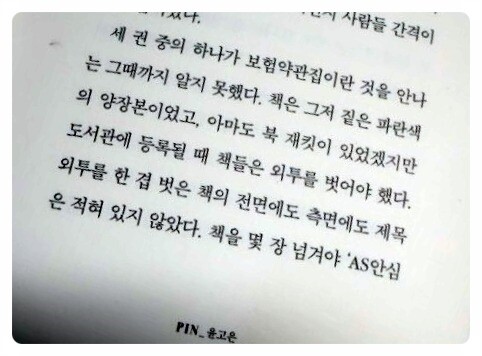 사람들 간격이
세 권 중의 하나가 보험약관집이란 것을 안나
는 그때까지 알지 못했다. 책은 그저 짙은 파란색
의 양장본이었고, 아마도 북 재킷이 있었겠지만
도서관에 등록될 때 책들은 외투를 벗어야 했다.
외투를 한 겹 벗은 책의 전면에도 측면에도 제목
은 적혀 있지 않았다. 책을 몇 장 넘겨야 ‘AS안심
PIN_ 윤고은